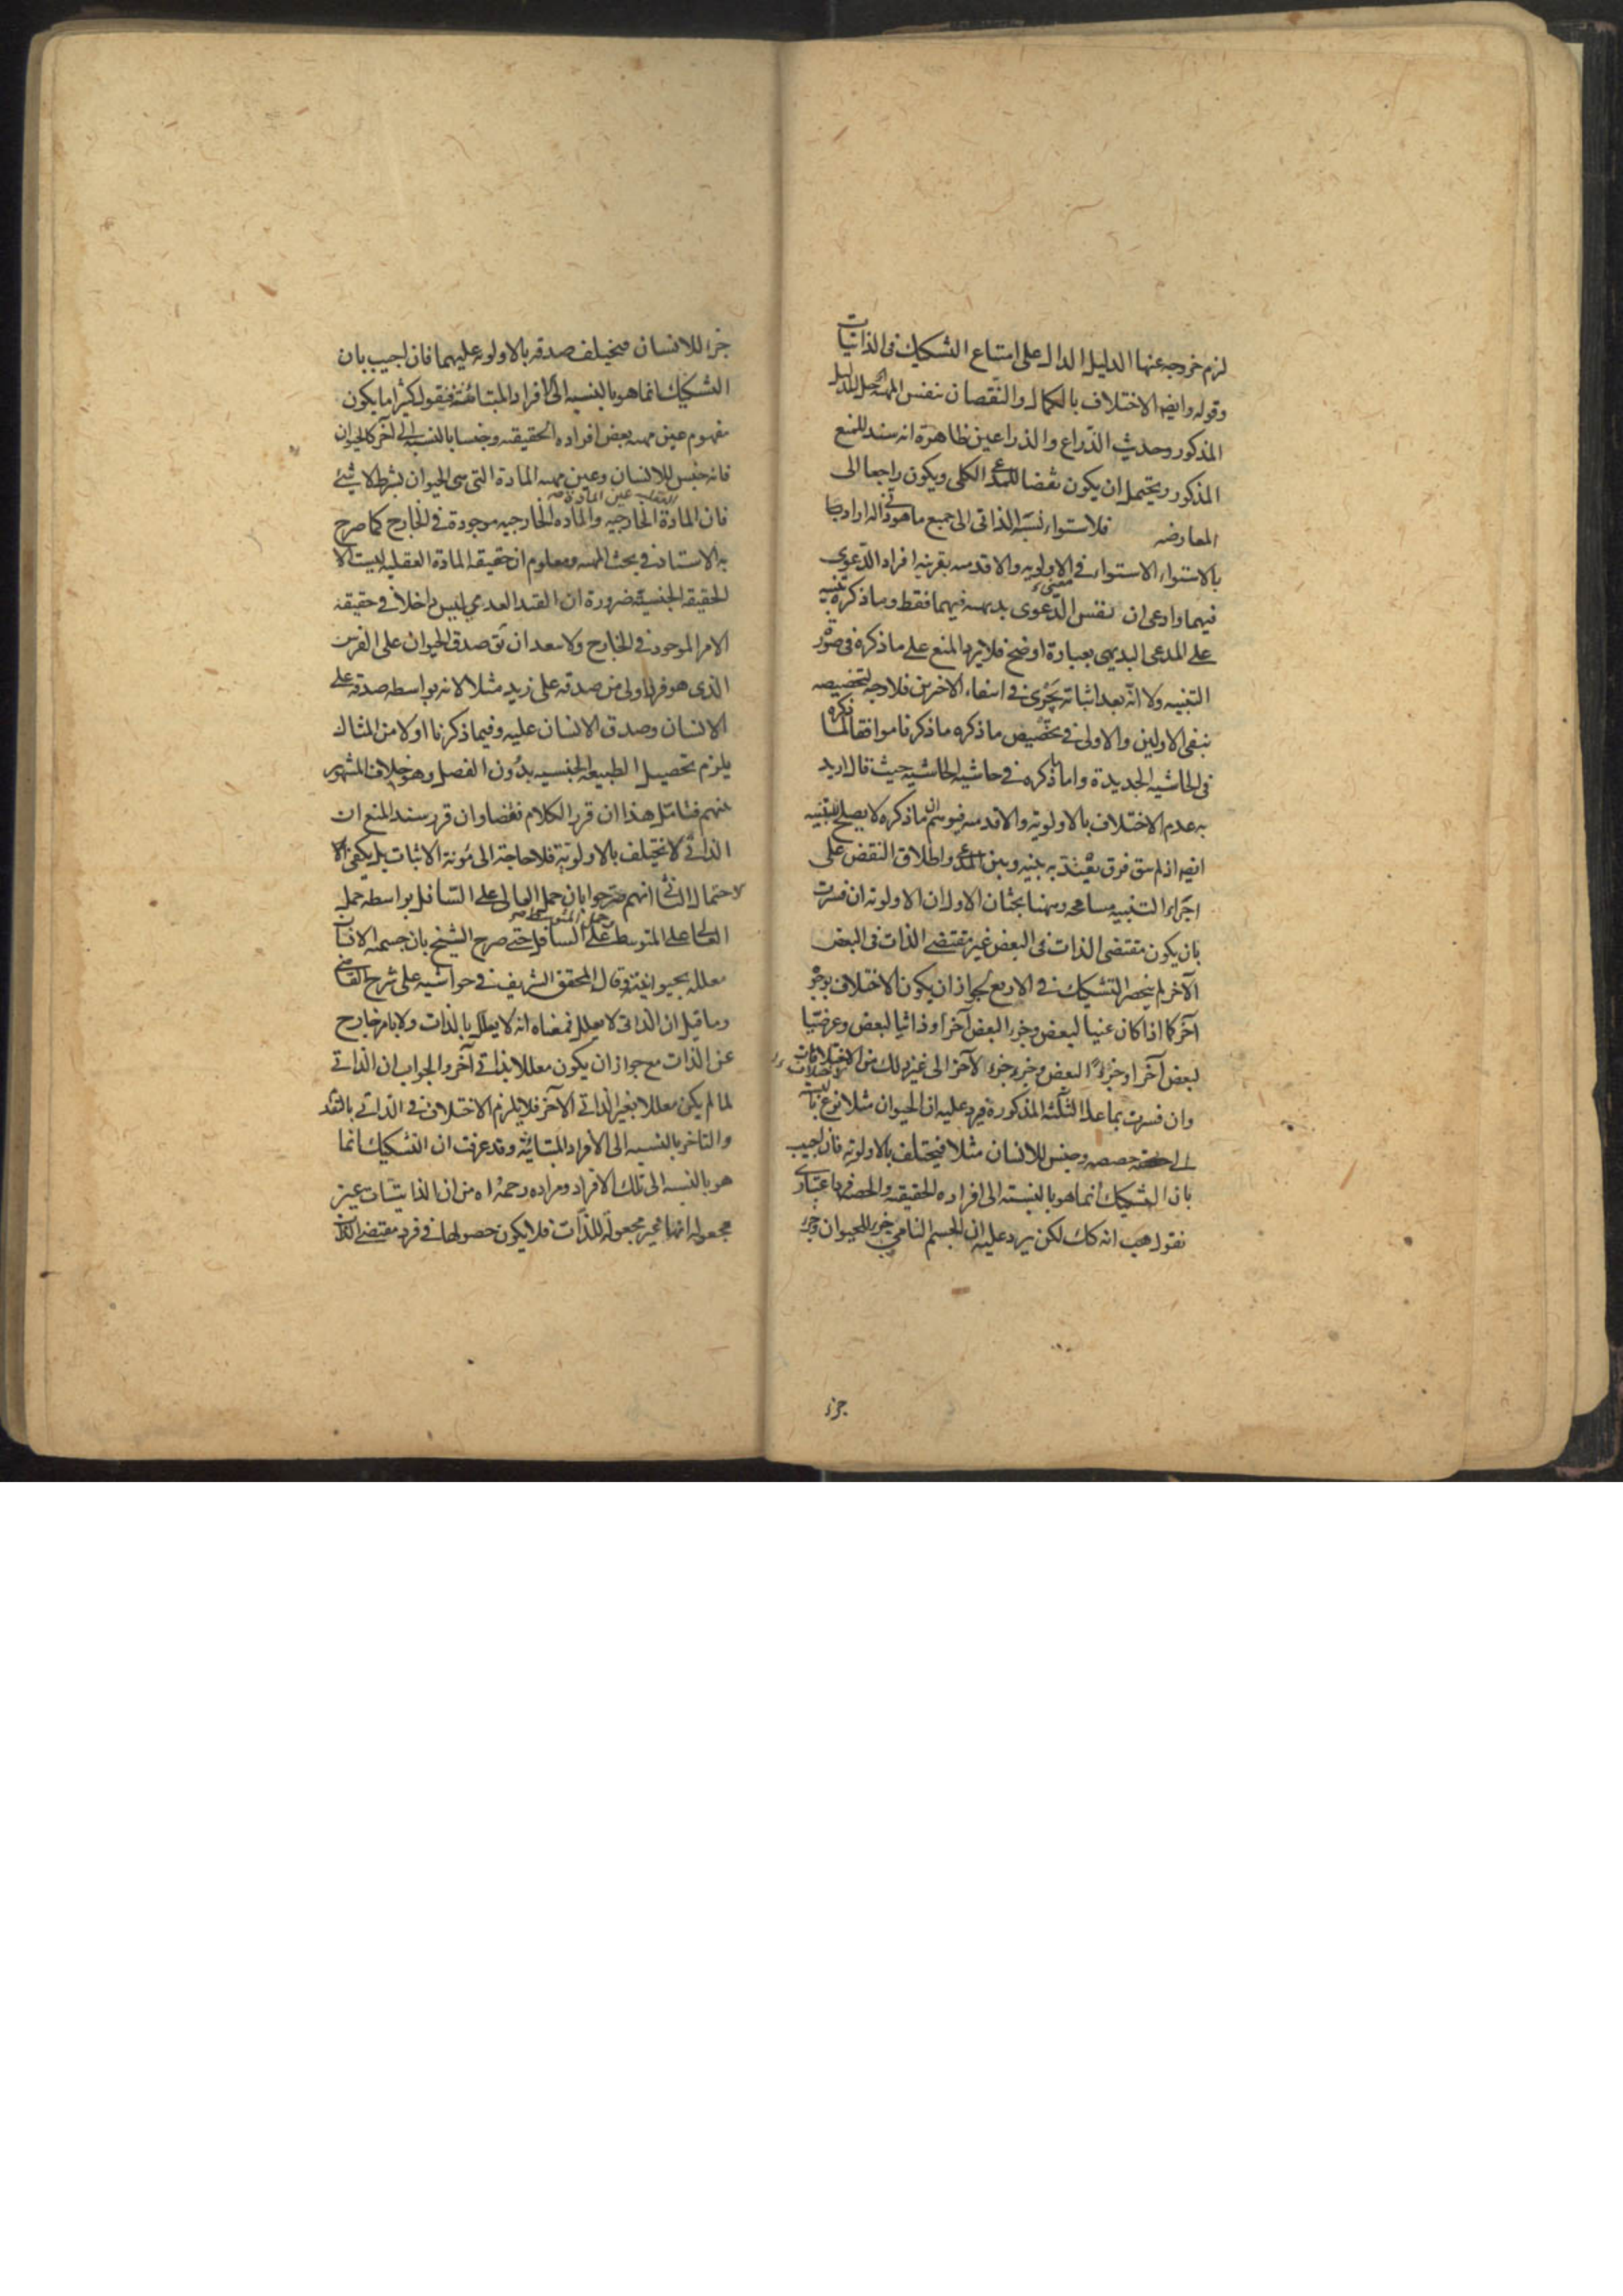 لزم خروجه عنها الدليل الدال على امتناع التشكيك فى الذاتيات
وقوله وايضا الاختلاف بالكمال والنقصان بنفس المهية للدليل
المذكور وحديث الذراع والذراعين ظاهرة انه سند للمنع
المذكور ويحتمل ان يكون نقضا للمدعى الكلى ويكون راجعا الى
المعارضه فلاستواء نسبة الذاتى الى جميع ما هو ذاتى له اراد
بالاستواء الاستواء فى الاولويه والاقدميه بقرينه افراد الدعوى
فيهما وادعى ان نفس الدعوى بديهيه فيهما فقط وما ذكره تنبيه
على المدعى البديهى بعبارة اوضح فلا يرد المنع على ما ذكره فى صورة
التنبيه ولا انه بعد اثباته يجرى فى انتفاء الاخرين فلا وجه لتخصيصه
بنفى الاولين والاولى فى تخصيص ما ذكره ما ذكرنا موافقا لما ذكره
فى الحاشيه الجديدة واما ما ذكره فى حاشيه الحاشيه حيث قال اريد
به عدم الاختلاف بالاولويه والاقدميه فيوهم ان ما ذكره لا يصلح للتنبيه
ايضا اذ لم يبق فرق يعتد به بينه وبين المدعى واطلاق النقض على
اجراء التنبيه مسامحه وههنا بحثان الاول ان الاولويه ان فسرت
بان يكون مقتضى الذات فى البعض غير مقتضى الذات فى البعض
الآخر لم ينحصر التشكيك فى الاربع لجواز ان يكون الاختلاف بوجوه
آخر كما اذا كان عينا لبعض وجزء البعض آخر او ذاتيا لبعض وعرضيا
لبعض آخر او جزءا لبعض وجزء جزء لآخر الى غير ذلك من الاختلافات
وان فسرت بما عدا الثلثه المذكورة فيرد عليه ان الحيوان مثلا نوع بالنسبه
الى حصصه وجنس للانسان مثلا فيختلف بالاولويه فان اجيب
بان التشكيك انما هو بالنسبته الى افراده الحقيقيه والحصه فرد اعتبارى
نقول هب انه كك لكن يرد عليه ان الجسم النامى جزء للحيوان وجزء
جزء
جزء للانسان فيختلف صدقه بالاولويه عليهما فان اجيب بان
التشكيك انما هو بالنسبه الى الافراد المتباينة فنقول كثيرا ما يكون
مفهوم عين مهيه بعض افراده الحقيقيه وجنسا بالنسبه الى آخر كالحيوان
فانه جنس للانسان وعين مهيه المادة التى هى الحيوان بشرط لا شئ
فان المادة العقليه عين المادة الخارجيه والماده الخارجيه موجودة فى الخارج كما صرح
به الاستاد فى بحث المهيه ومعلوم ان حقيقه المادة العقليه ليست الا
الحقيقه الجنسية ضرورة ان القيد العدمى ليس داخلا فى حقيقة
الامر الموجود فى الخارج ولا يبعد ان يق صدق الحيوان على الفرس
الذى هو فرد اولى من صدقه على زيد مثلا لانه بواسطه صدقه على
الانسان وصدق الانسان عليه وفيما ذكرنا اولا من المثال
يلزم تحصيل الطبيعه الجنسيه بدون الفصل وهو خلاف المشهور
عنهم فتامل هذا ان قرر الكلام نقضا وان قرر سند المنع ان
الذاتى لا يختلف بالاولويه فلا حاجة الى مؤنة الاثبات بل يكفى
الاحتمال الثانى انهم صرحوا بان حمل العالى على السافل بواسطه حمل
العالى على المتوسط وحمل المتوسط على السافل حتى صرح الشيخ بان جسميه الانسان
معلله بحيوانيته وقال المحقق الشريف فى حواشيه على شرح القاضى
وما قيل ان الذاتى لا يعلل فمعناه انه لا يعلل بالذات ولا بامر خارج
عن الذات مع جواز ان يكون معللا بذاتى آخر والجواب ان الذاتى
لما لم يكن معللا بغير الذاتى الآخر فلا يلزم الاختلاف فى الذاتى بالتقدم
والتاخر بالنسبه الى الافراد المتباينة وقد عرفت ان التشكيك انما
هو بالنسبه الى تلك الافراد ومراده رحمه الله من ان الذاتيات غير
مجعوله انها غير مجعولة للذات فلا يكون حصولها فى فرد مقتضى الذات